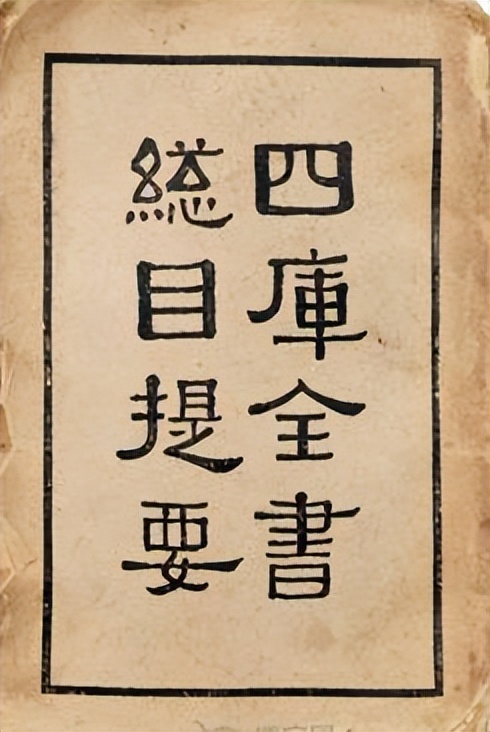 四庫全書
緫目提要